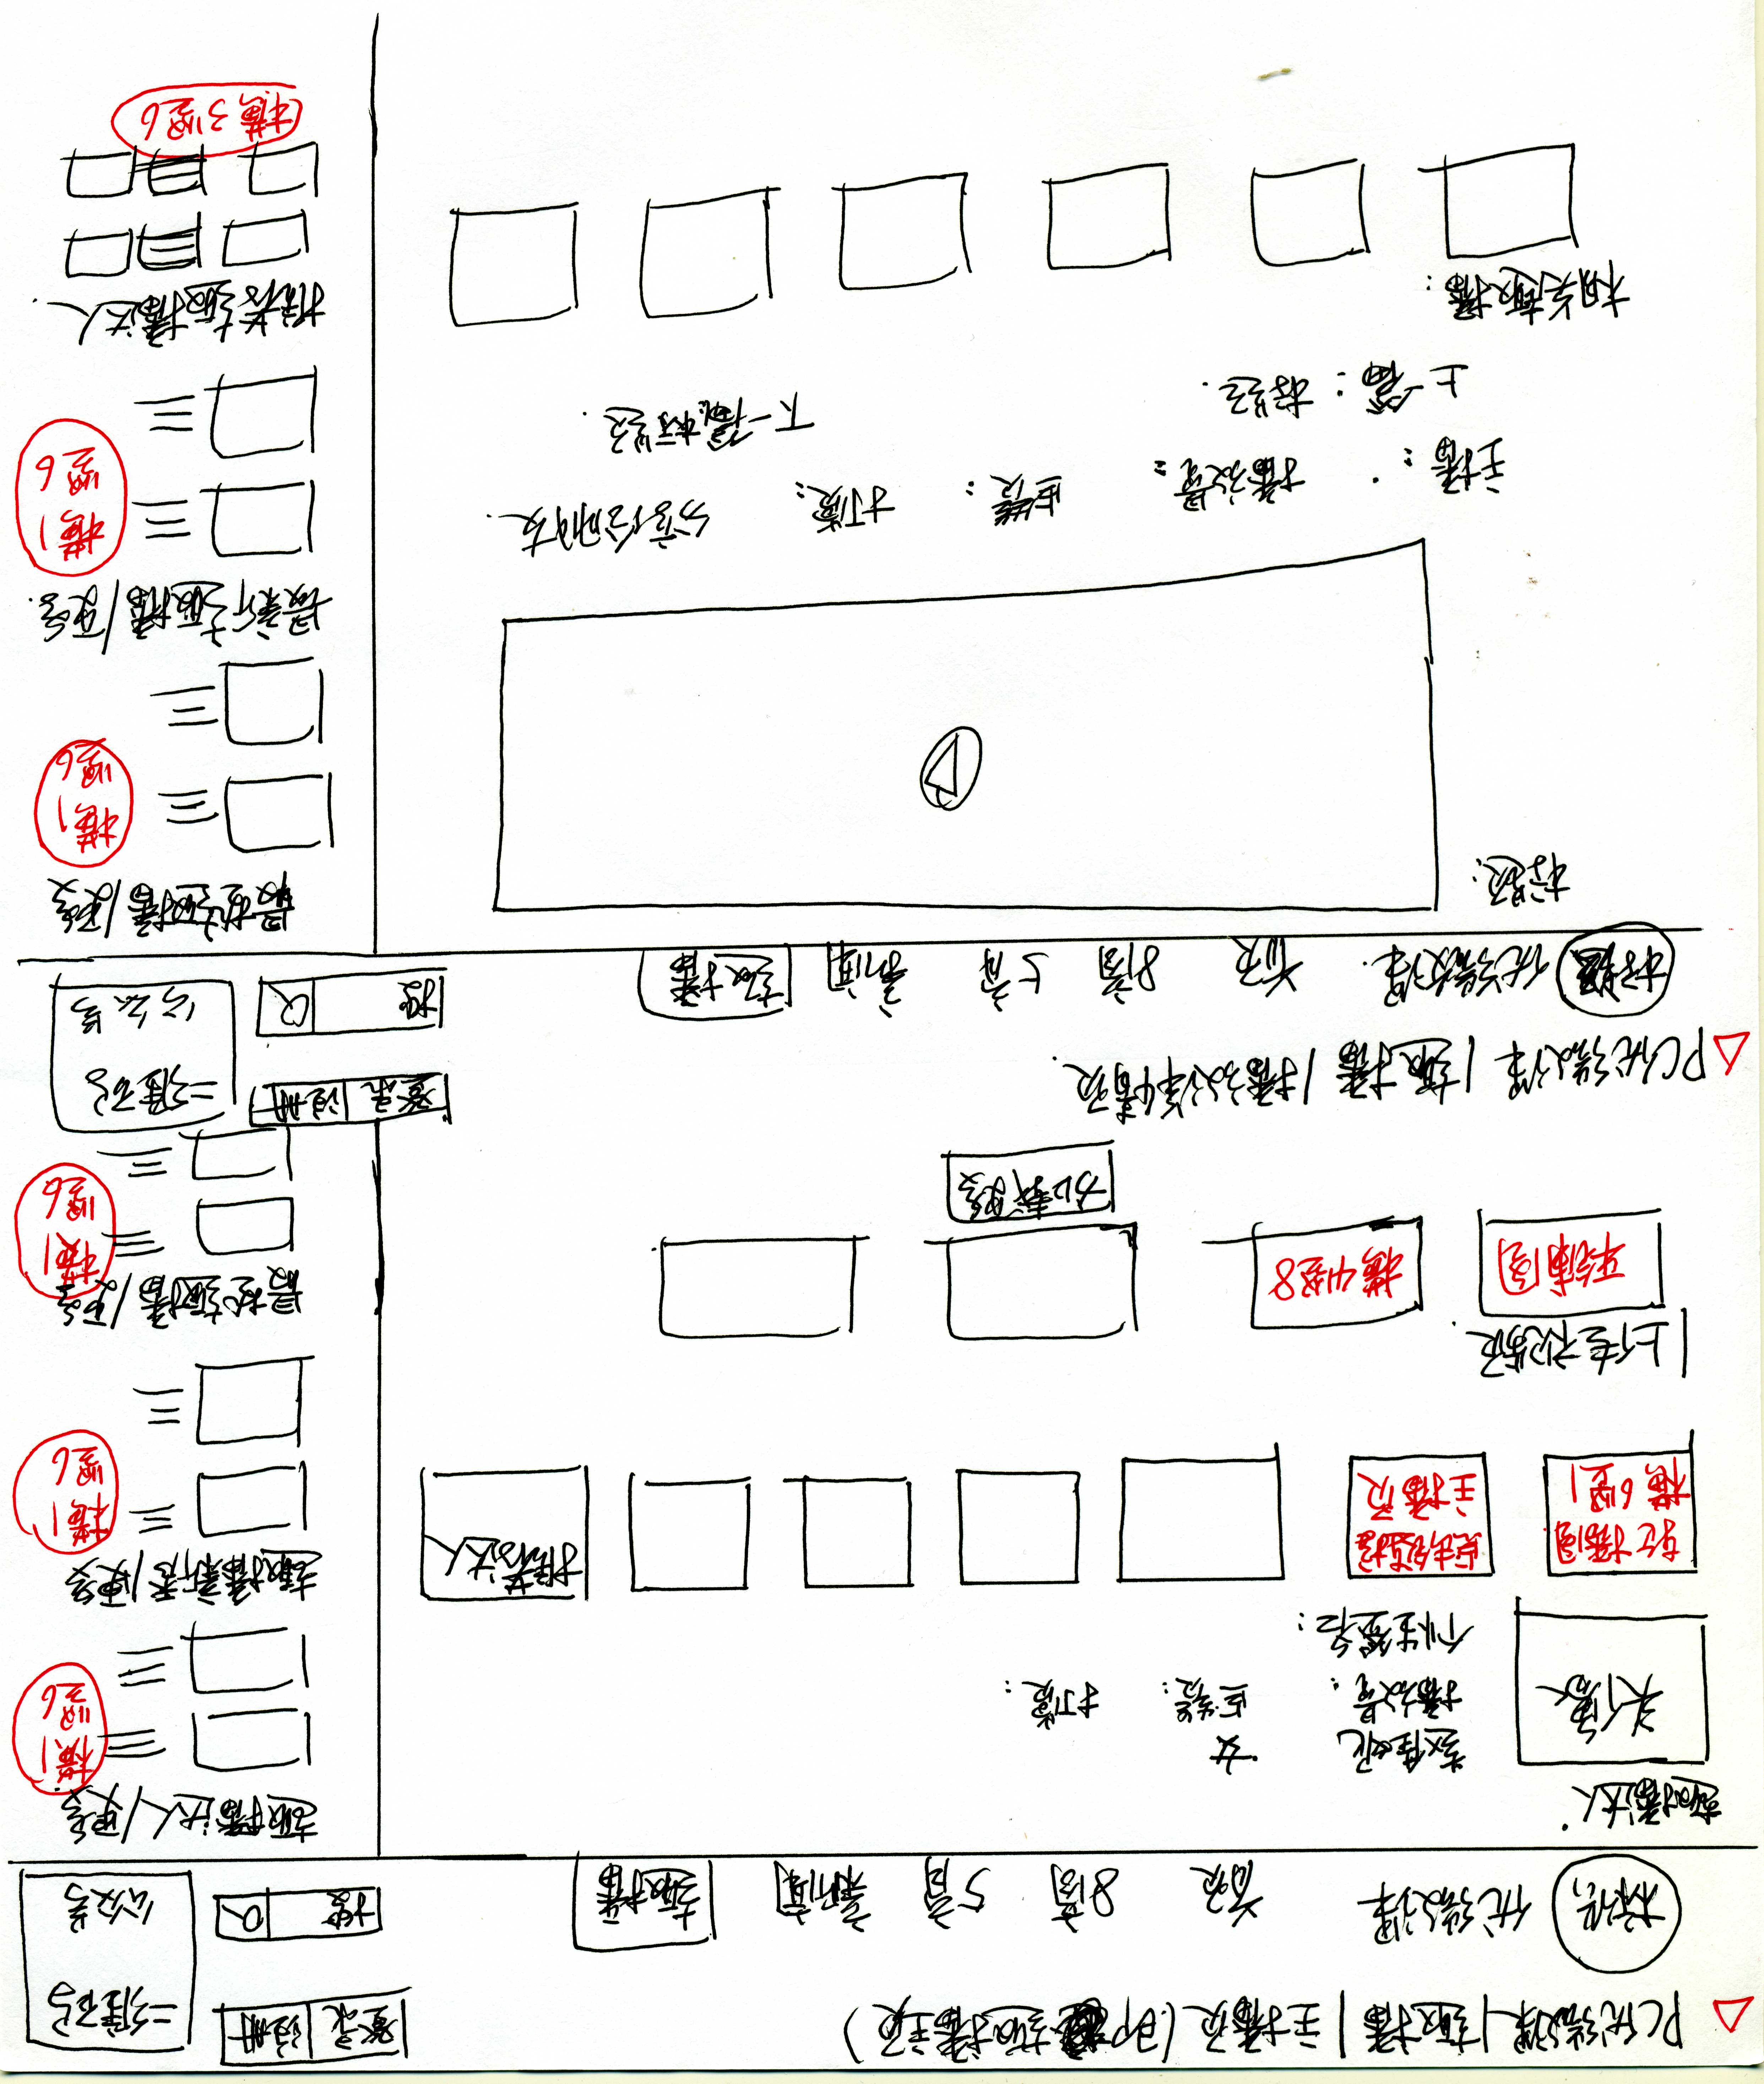 △ PC优微课|趣播|主播页(即趣播主页)
登录|注册
二维码
公众号
标识 优微课 首页 8商 5育 新闻 趣播
搜 Q
趣播达人
头像
赵佳妮 女
播放量: 点赞: 打赏:
个性签名:
轮播图
横6竖1
点击链接
主播页
推荐达人
上传视频
平铺图
横4竖8
加载更多
趣播达人/更多
横1
竖6
趣播新秀/更多
横1
竖6
最热趣播/更多
横1
竖6
△ PC优微课|趣播|播放详情页
登录|注册
二维码
公众号
标题 优微课 首页 8商 5育 新闻 趣播
搜 Q
标题:
主播: 播放量: 点赞: 打赏: 分享给朋友
上一篇:标题
下一篇:标题
相关趣播:
最热趣播/更多
横1
竖6
最新趣播/更多
横1
竖6
推荐趣播达人
横3竖6